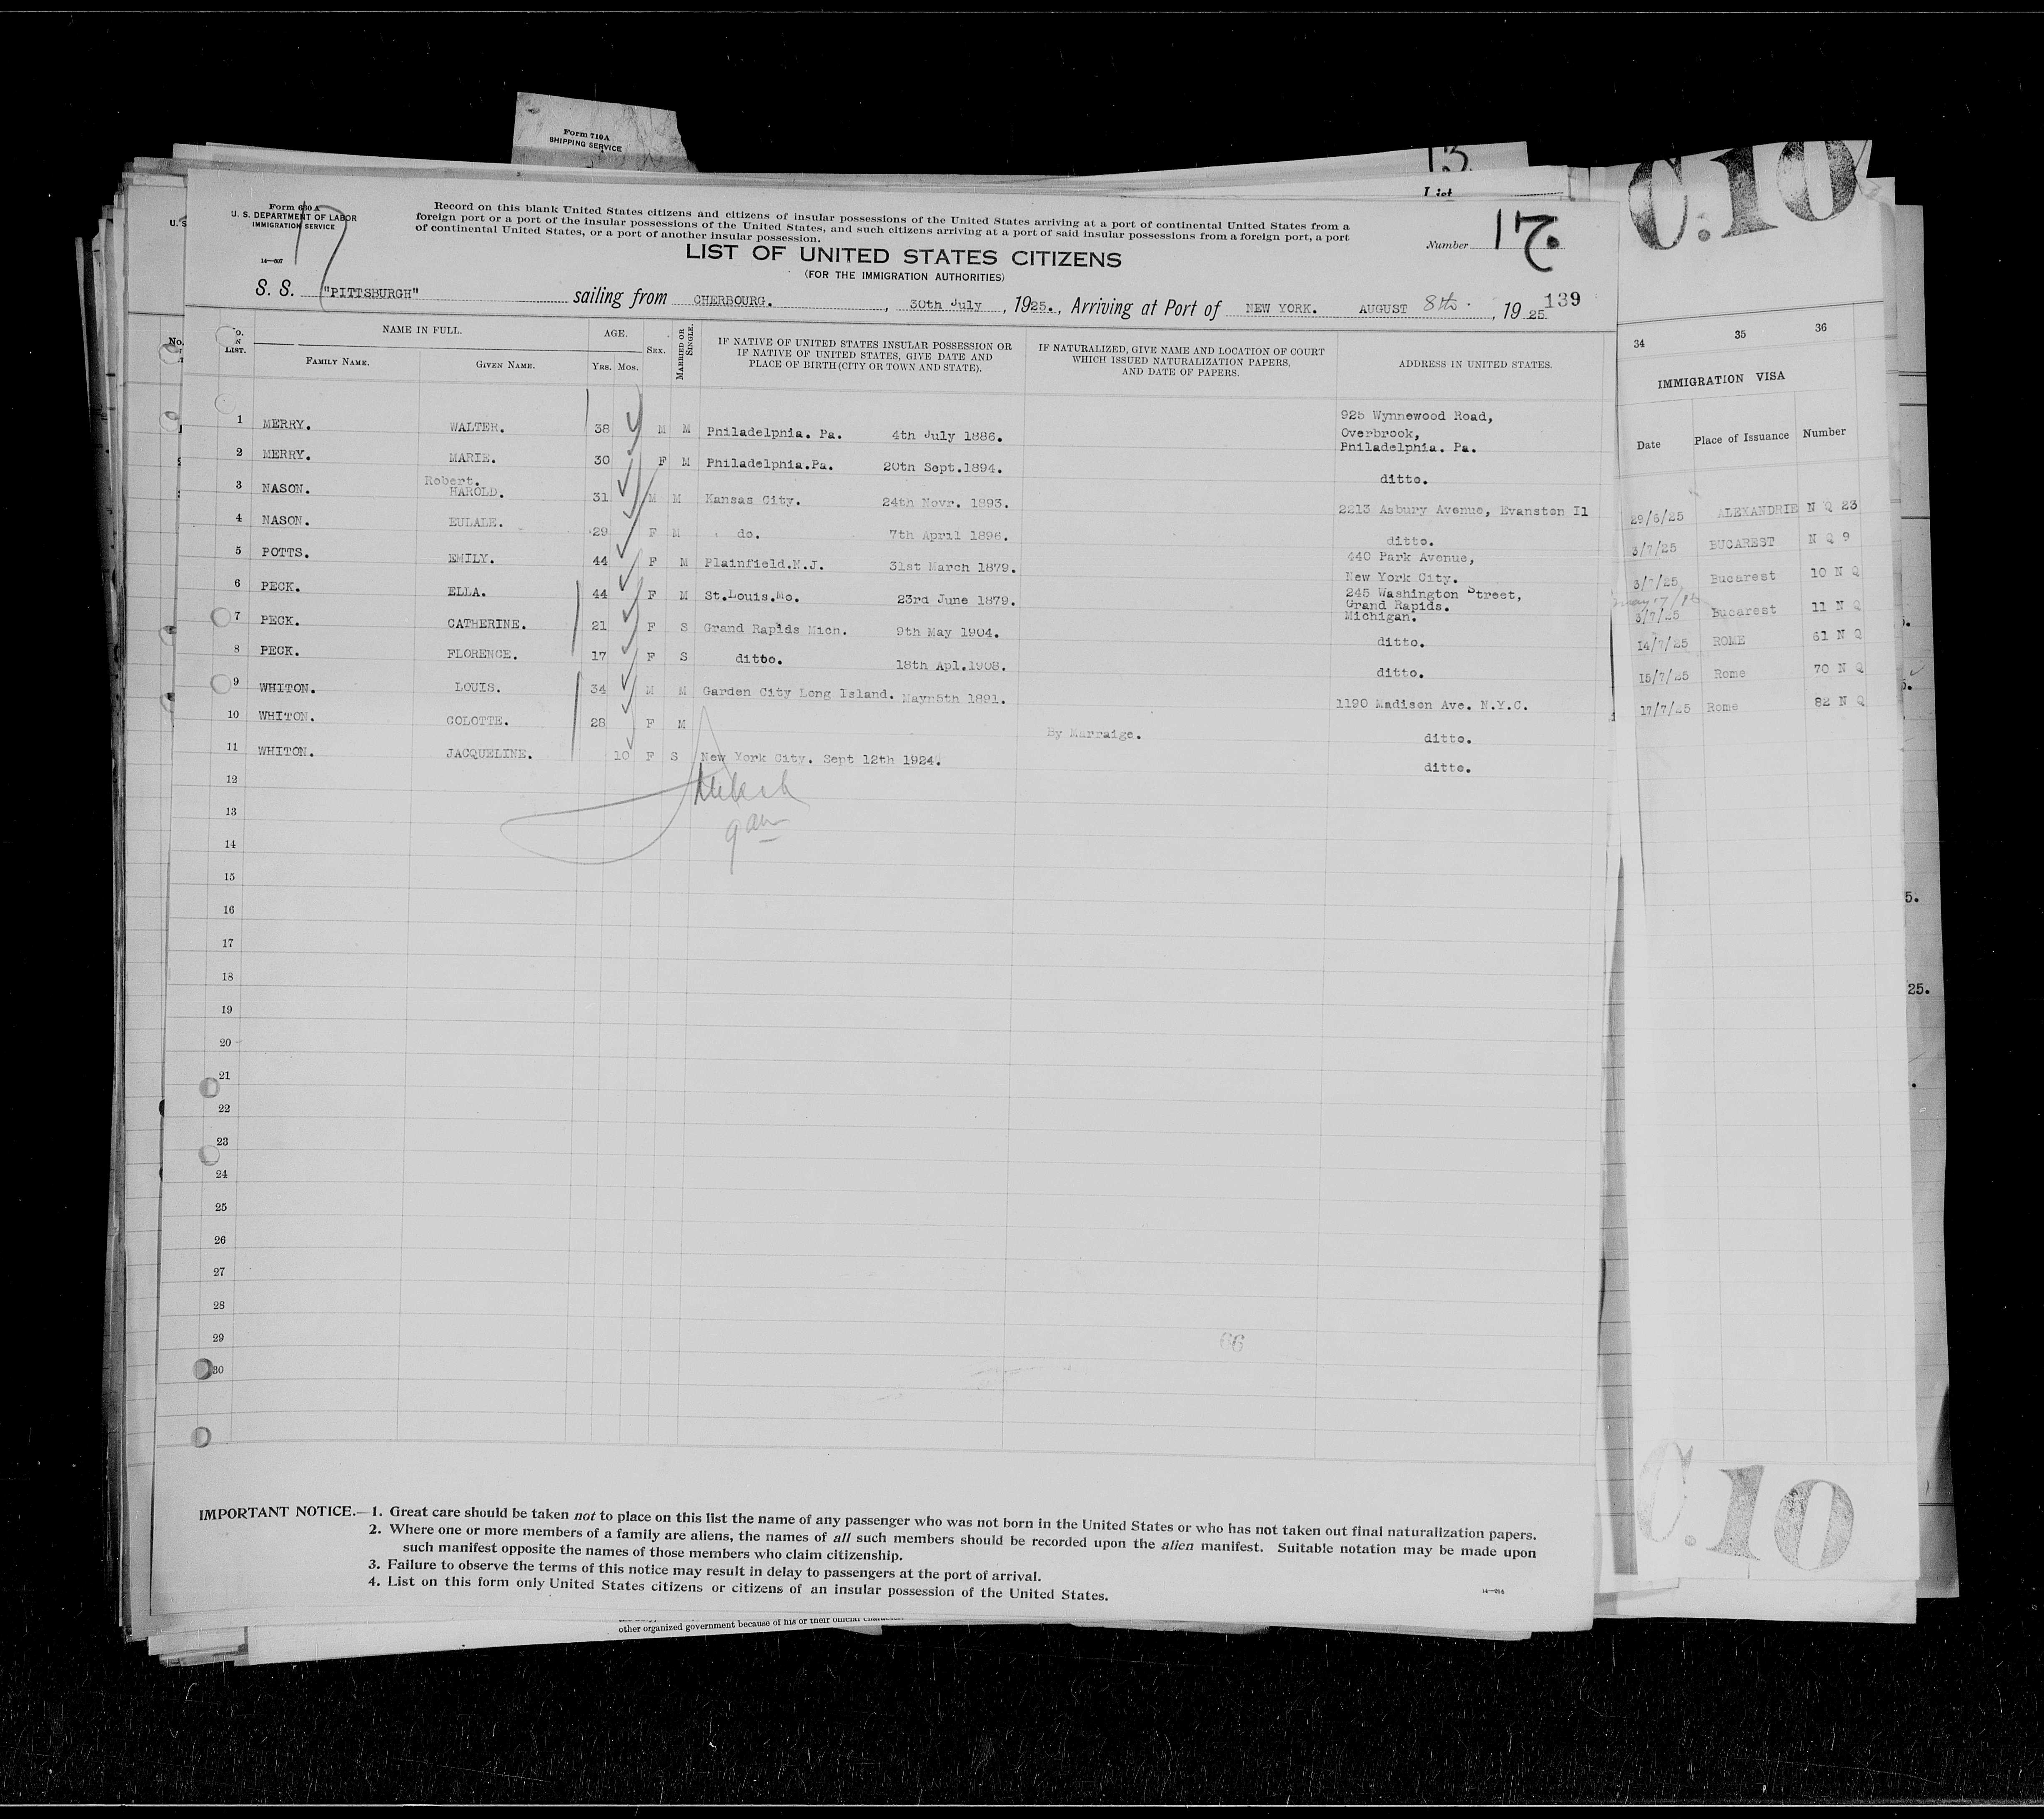 Form 710A
SHIPPING SERVICE
13
List
C.10
Form 630 A
U. S. DEPARTMENT OF LABOR
IMMIGRATION SERVICE
14—607
17
Record on this blank United States citizens and citizens of insular possessions of the United States arriving at a port of continental United States from a
foreign port or a port of the insular possessions of the United States, and such citizens arriving at a port of said insular possessions from a foreign port, a port
of continental United States, or a port of another insular possession.
Number 17.
LIST OF UNITED STATES CITIZENS
(FOR THE IMMIGRATION AUTHORITIES)
S. S. "PITTSBURGH" sailing from CHERBOURG. , 30th July , 1925. , Arriving at Port of NEW YORK. AUGUST 8th , 1925 139
No. LIST. NAME IN FULL. FAMILY NAME. GIVEN NAME. AGE. YRS. MOS. SEX. MARRIED OR SINGLE. IF NATIVE OF UNITED STATES INSULAR POSSESSION OR IF NATIVE OF UNITED STATES, GIVE DATE AND PLACE OF BIRTH (CITY OR TOWN AND STATE). IF NATURALIZED, GIVE NAME AND LOCATION OF COURT WHICH ISSUED NATURALIZATION PAPERS, AND DATE OF PAPERS. ADDRESS IN UNITED STATES.
1 MERRY. WALTER. 38 M M Philadelphia. Pa. 4th July 1886. 925 Wynnewood Road, Overbrook, Philadelphia. Pa.
2 MERRY. MARIE. 30 F M Philadelphia.Pa. 20th Sept.1894. ditto.
3 NASON. Robert. HAROLD. 31 M M Kansas City. 24th Novr. 1893. 2213 Asbury Avenue, Evanston Il
4 NASON. EULALE. 29 F M do. 7th April 1896. ditto.
5 POTTS. EMILY. 44 F M Plainfield.N.J. 31st March 1879. 440 Park Avenue, New York City.
6 PECK. ELLA. 44 F M St.Louis.Mo. 23rd June 1879. 245 Washington Street, Grand Rapids. Michigan.
7 PECK. CATHERINE. 21 F S Grand Rapids Micn. 9th May 1904. ditto.
8 PECK. FLORENCE. 17 F S ditto. 18th Apl.1908. ditto.
9 WHITON. LOUIS. 34 M M Garden City Long Island. Mayn5th 1891. 1190 Madison Ave. N.Y.C.
10 WHITON. COLOTTE. 28 F M By Marraige. ditto.
11 WHITON. JACQUELINE. 10 F S New York City. Sept 12th 1924. ditto.
12
13
14
15
16
17
18
19
20
21
22
23
24
25
26
27
28
29
30
66
34 35 36
IMMIGRATION VISA
Date Place of Issuance Number
29/6/25 ALEXANDRIE N Q 23
3/7/25 BUCAREST N Q 9
3/7/25 Bucarest 10 N Q
3/7/25 Bucarest 11 N Q
14/7/25 ROME 61 N Q
15/7/25 Rome 70 N Q
17/7/25 Rome 82 N Q
5.
25.
IMPORTANT NOTICE.—1. Great care should be taken not to place on this list the name of any passenger who was not born in the United States or who has not taken out final naturalization papers.
2. Where one or more members of a family are aliens, the names of all such members should be recorded upon the alien manifest. Suitable notation may be made upon
such manifest opposite the names of those members who claim citizenship.
3. Failure to observe the terms of this notice may result in delay to passengers at the port of arrival.
4. List on this form only United States citizens or citizens of an insular possession of the United States.
C.10
other organized government because of his or their official